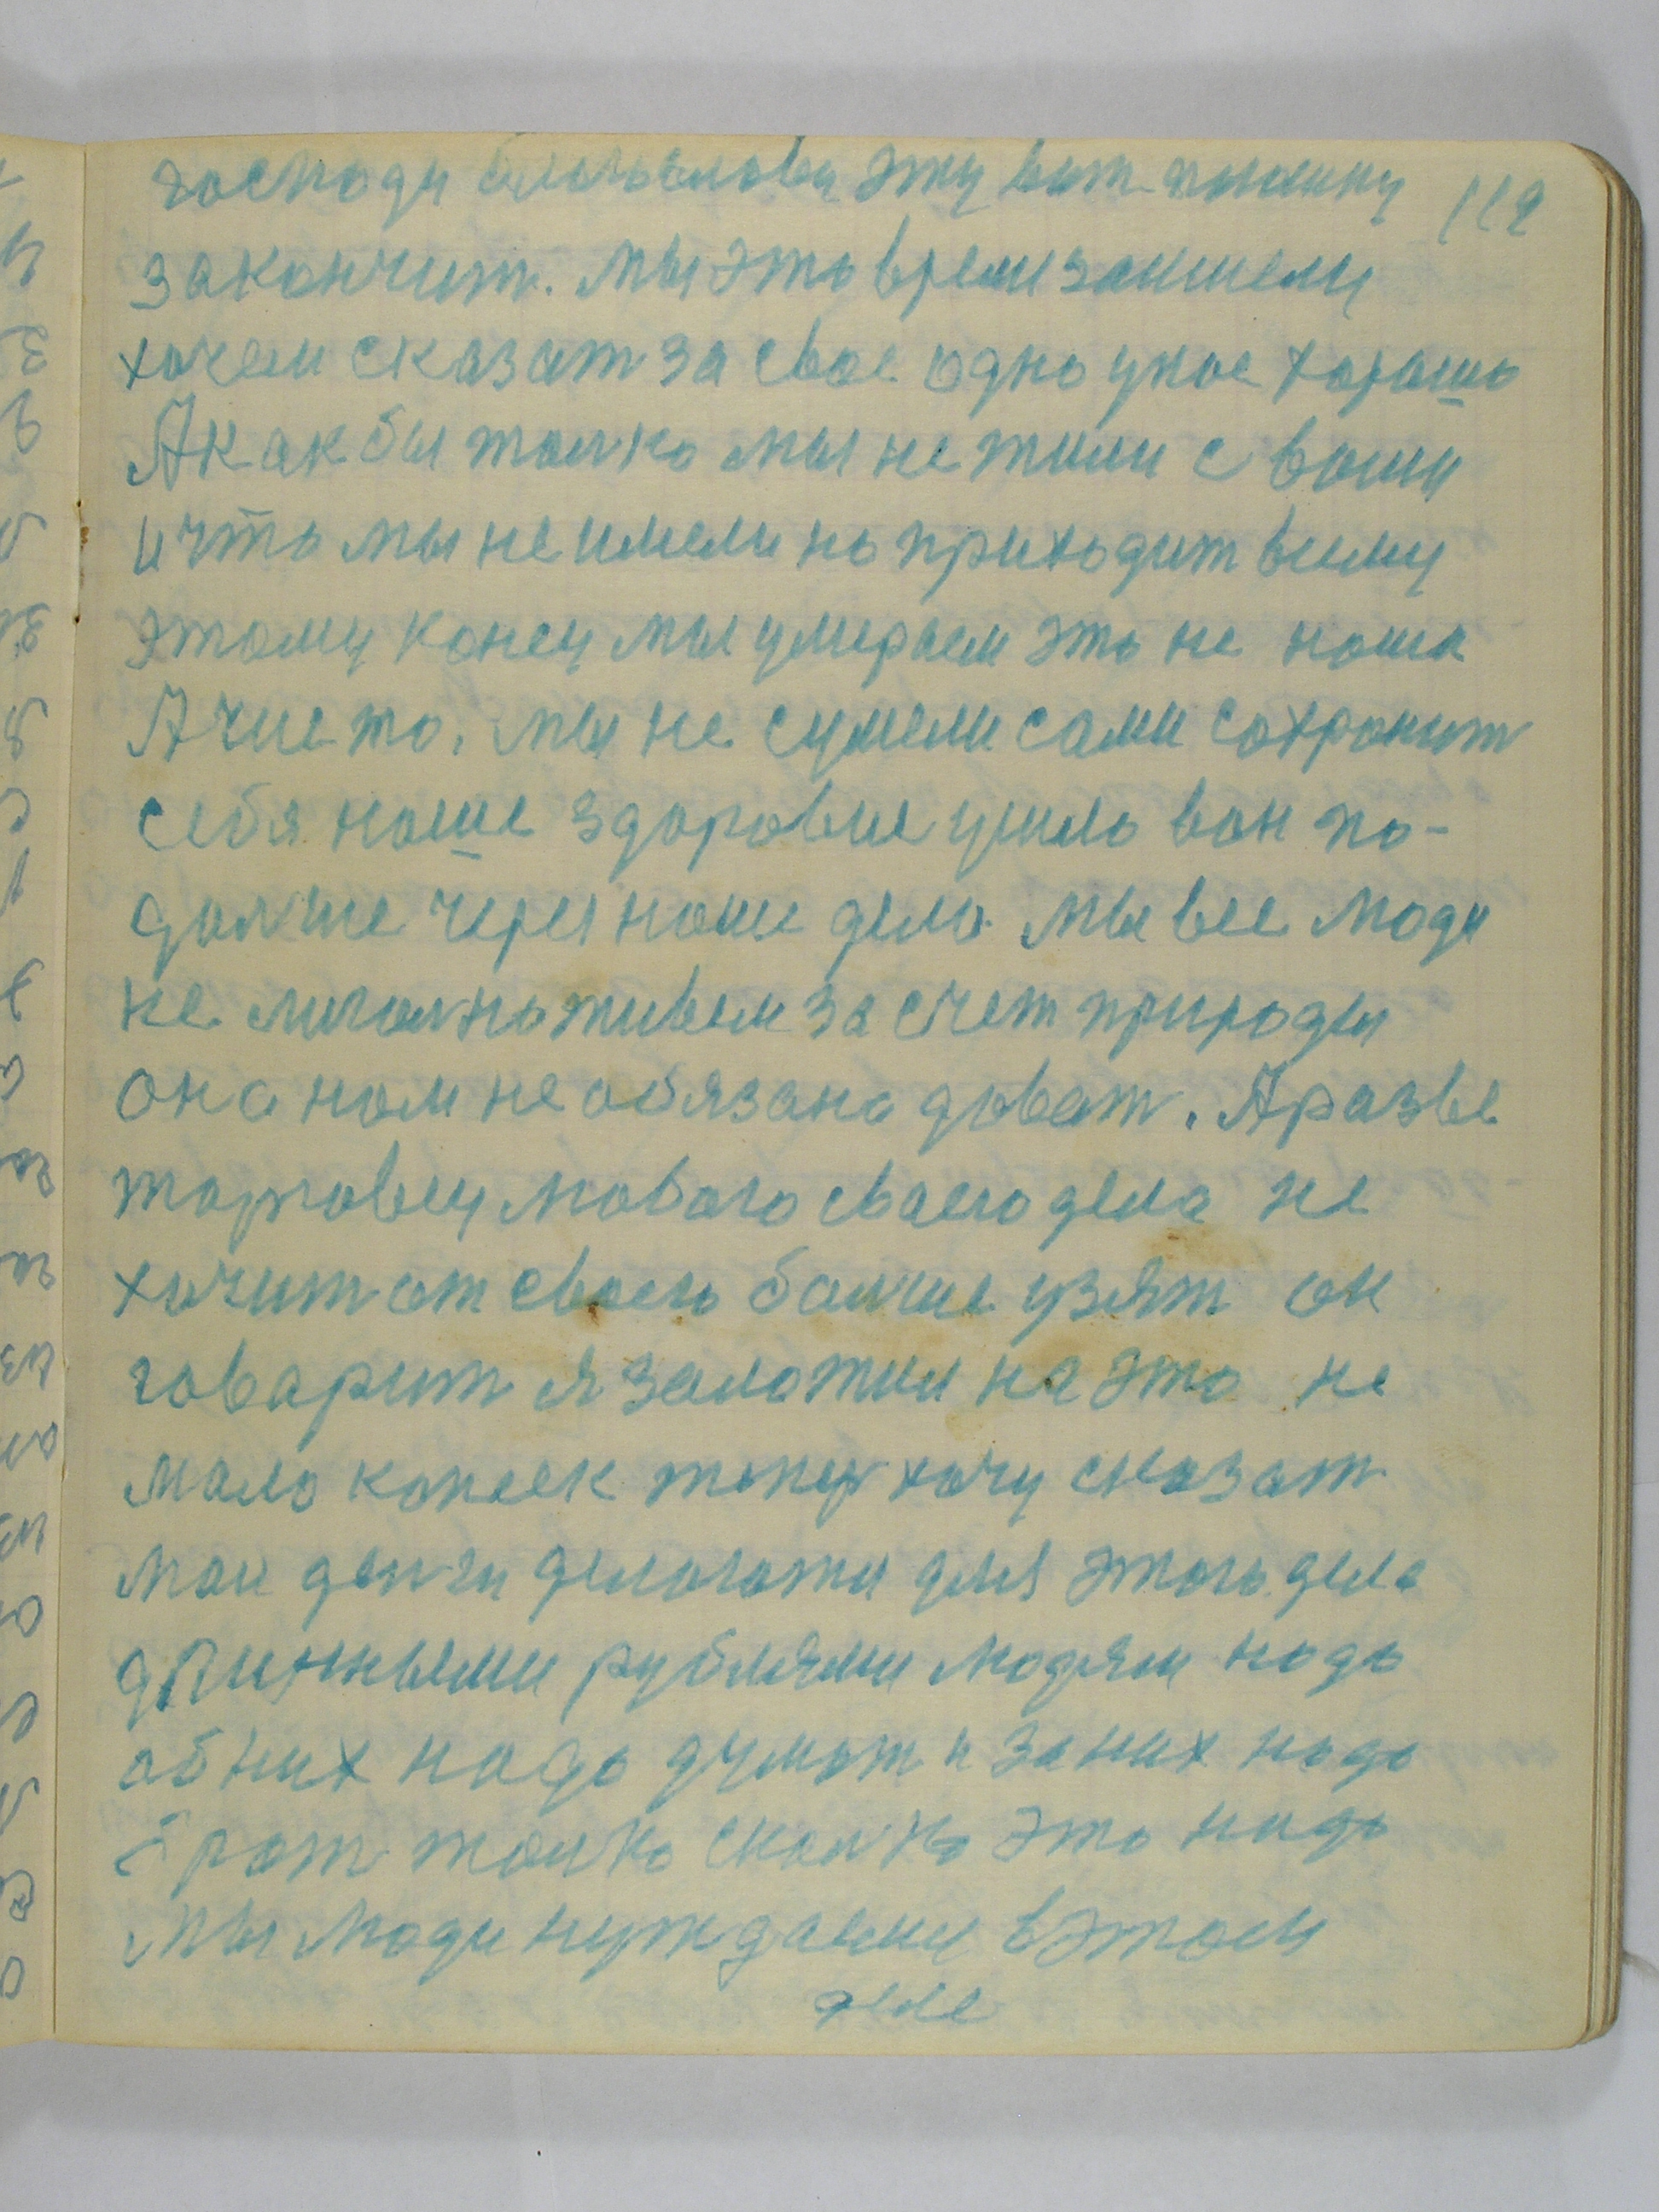 господи благослови эту вот тын 112
закончит. мы это время заимели
хочем сказат за свое одно укое хорошо
А как бы толко мы не жили с вами
и что мы не имели но приходит всему
этому конец мы умираем это не наша
А чие то. мы не сумели сами сохранит
себя наше здоровие ушло вон по-
далше через наше дело мы все люди
не легално живем за счет природы
она нам не обязана доват. А разве
торговец любого своего дела не
хочит от своего болше узят он
говарит я заложил на это не
мало копеек тепер хочу сказат
мои денги делаготи для этого дела
длинными рублями людям надо
об них надо думат и за них надо
брат толко сколко это надо
мы люди нуждаемся в этом
деле